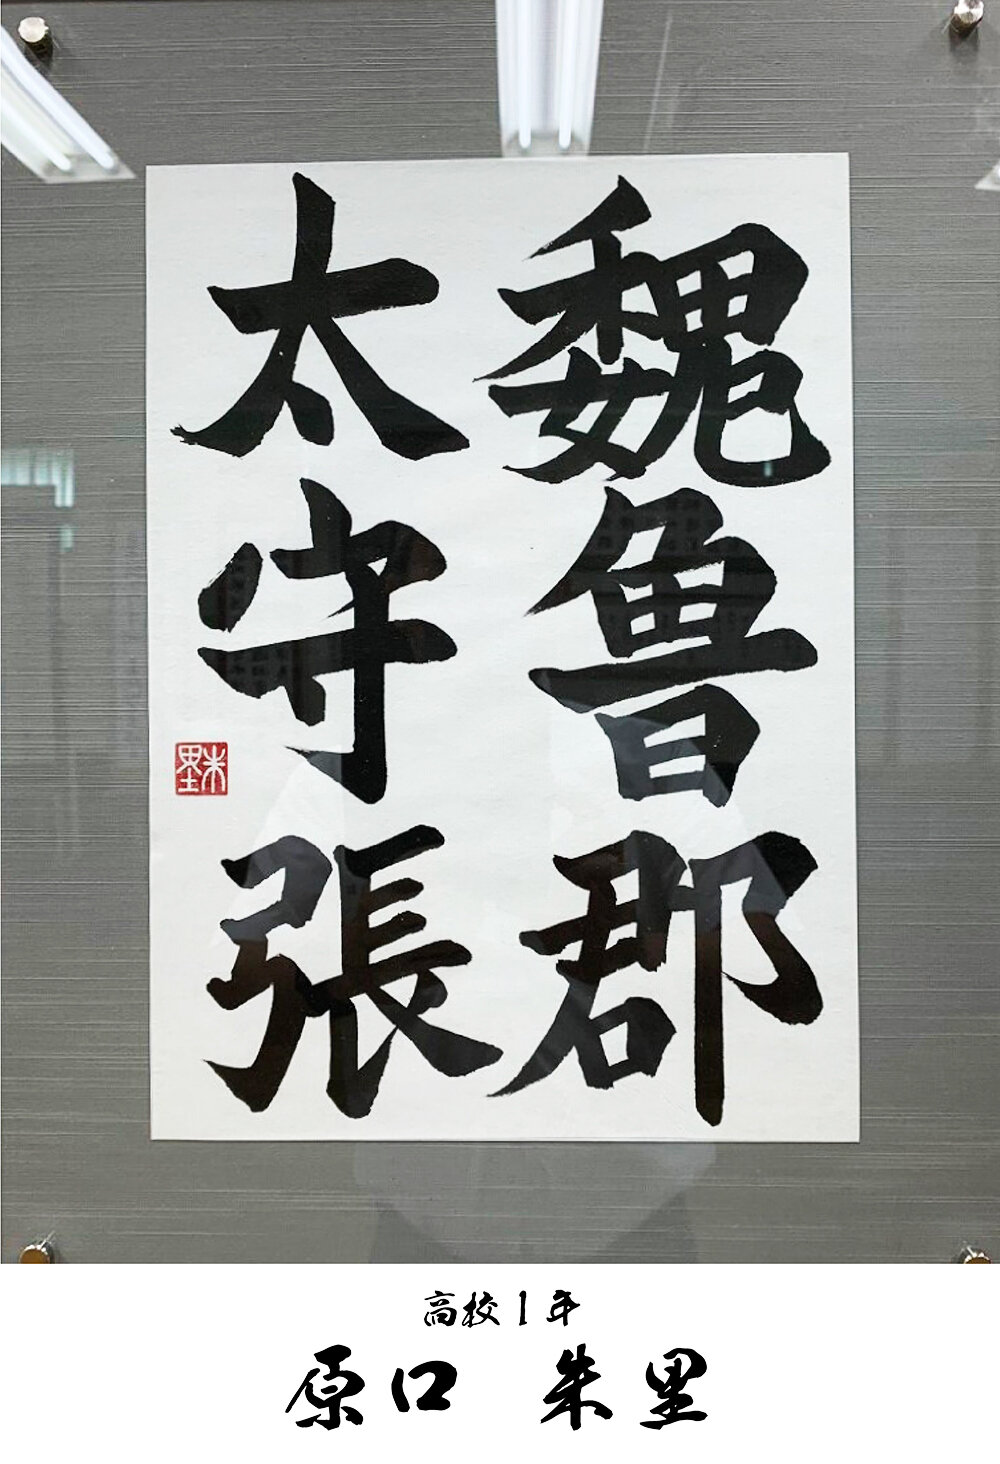 魏魯郡
太守張
朱里
高校1年
原口 朱里